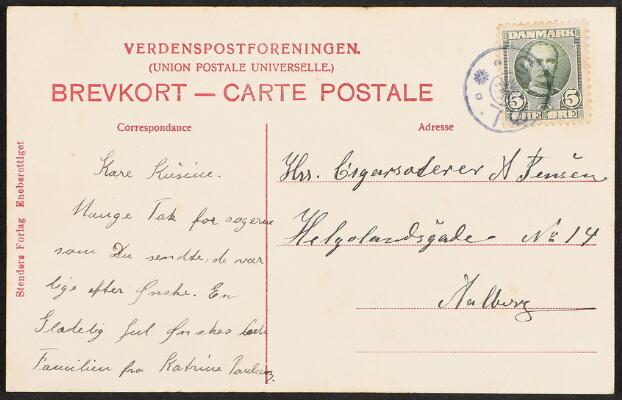 VERDENSPOSTFORENINGEN.
(UNION POSTALE UNIVERSELLE.)
BREVKORT — CARTE POSTALE
DANMARK
5 5
ØRE ØRE
Correspondance
Adresse
Stenders Forlag Eneberettiget
Kære Kusine.
Mange Tak for sagerne
som Du sendte, de var
lige efter Ønske. En
Glædelig Jul Ønskes hele
Familien fra Katrine Poulsen.
Hrr. Cigarsoterer A Jensen
Helgolandsgade No 14
Aalborg